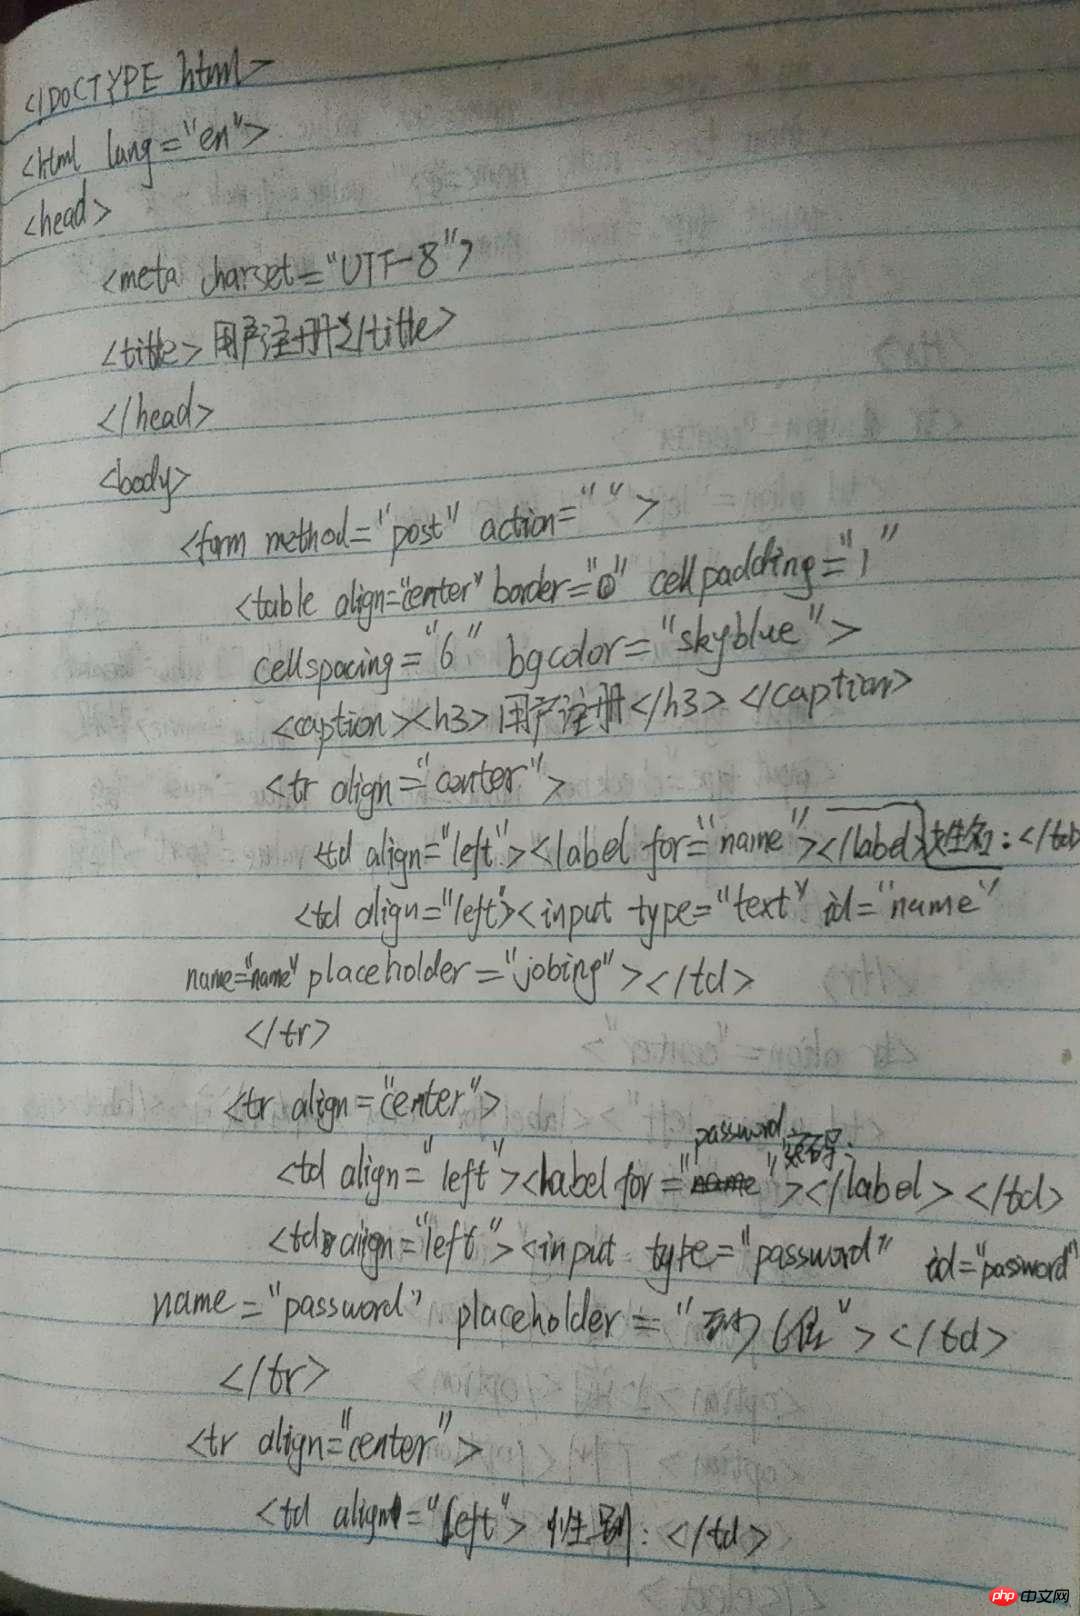 <!DOCTYPE html>
<html lang="en">
<head>
<meta charset="UTF-8">
<title>用户注册</title>
</head>
<body>
<form method="post" action=" ">
<table align="center" border="0" cellpadding="1"
cellspacing="6" bgcolor="skyblue">
<caption><h3>用户注册</h3></caption>
<tr align="center">
<td align="left"><label for="name"></label>姓名:</td>
<td align="left"><input type="text" id="name"
name="name" placeholder="jobing"></td>
</tr>
<tr align="center">
<td align="left"><label for="password">密码:</label></td>
<td align="left"><input type="password" id="password"
name="password" placeholder="至少6位"></td>
</tr>
<tr align="center">
<td align="left">性别:</td>
php 中文网